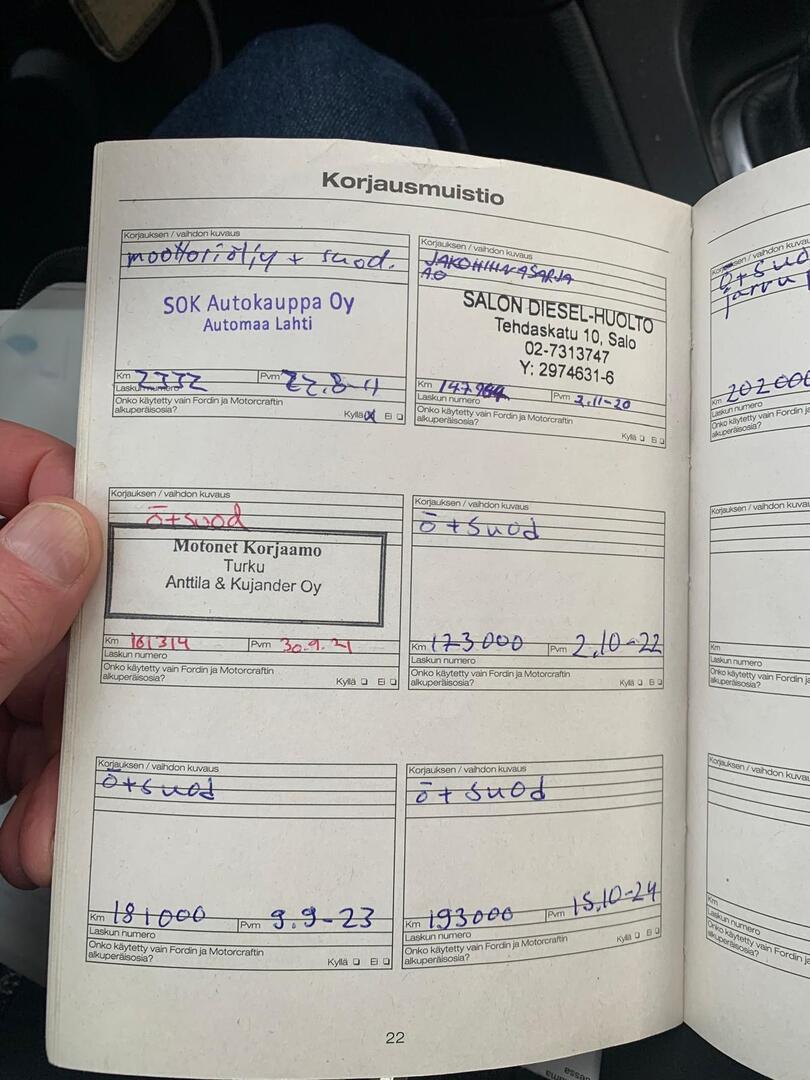 Korjausmuistio
Korjauksen / vaihdon kuvaus
moottoriöljy + suod.
SOK Autokauppa Oy
Automaa Lahti
Km 2332 Pvm 22.8-11
Laskun numero
Onko käytetty vain Fordin ja Motorcraftin
alkuperäisosia? Kyllä Ei
Korjauksen / vaihdon kuvaus
JAKOHIHNASARJA
A.O
SALON DIESEL-HUOLTO
Tehdaskatu 10, Salo
02-7313747
Y: 2974631-6
Km Pvm 2.11-20
Laskun numero
Onko käytetty vain Fordin ja Motorcraftin
alkuperäisosia? Kyllä Ei
Korjauksen / vaihdon kuvaus
ö+suod
Motonet Korjaamo
Turku
Anttila & Kujander Oy
Km 161314 Pvm 30.9.21
Laskun numero
Onko käytetty vain Fordin ja Motorcraftin
alkuperäisosia? Kyllä Ei
Korjauksen / vaihdon kuvaus
ö + suod
Km 173000 Pvm 2.10-22
Laskun numero
Onko käytetty vain Fordin ja Motorcraftin
alkuperäisosia? Kyllä Ei
Korjauksen / vaihdon kuvaus
ö+suod
Km 181000 Pvm 9.9-23
Laskun numero
Onko käytetty vain Fordin ja Motorcraftin
alkuperäisosia? Kyllä Ei
Korjauksen / vaihdon kuvaus
ö + suod
Km 193000 Pvm 15.10-24
Laskun numero
Onko käytetty vain Fordin ja Motorcraftin
alkuperäisosia? Kyllä Ei
22
Korjauksen / vaihdon kuvau
ö+suo
Km 202000
Laskun numero
Onko käytetty vain Fordin ja
alkuperäisosia?
Korjauksen / vaihdon kuvau
Km
Laskun numero
Onko käytetty vain Fordin ja
alkuperäisosia?
Korjauksen / vaihdon kuva
Km
Laskun numero
Onko käytetty vain Fordin ja
alkuperäisosia?